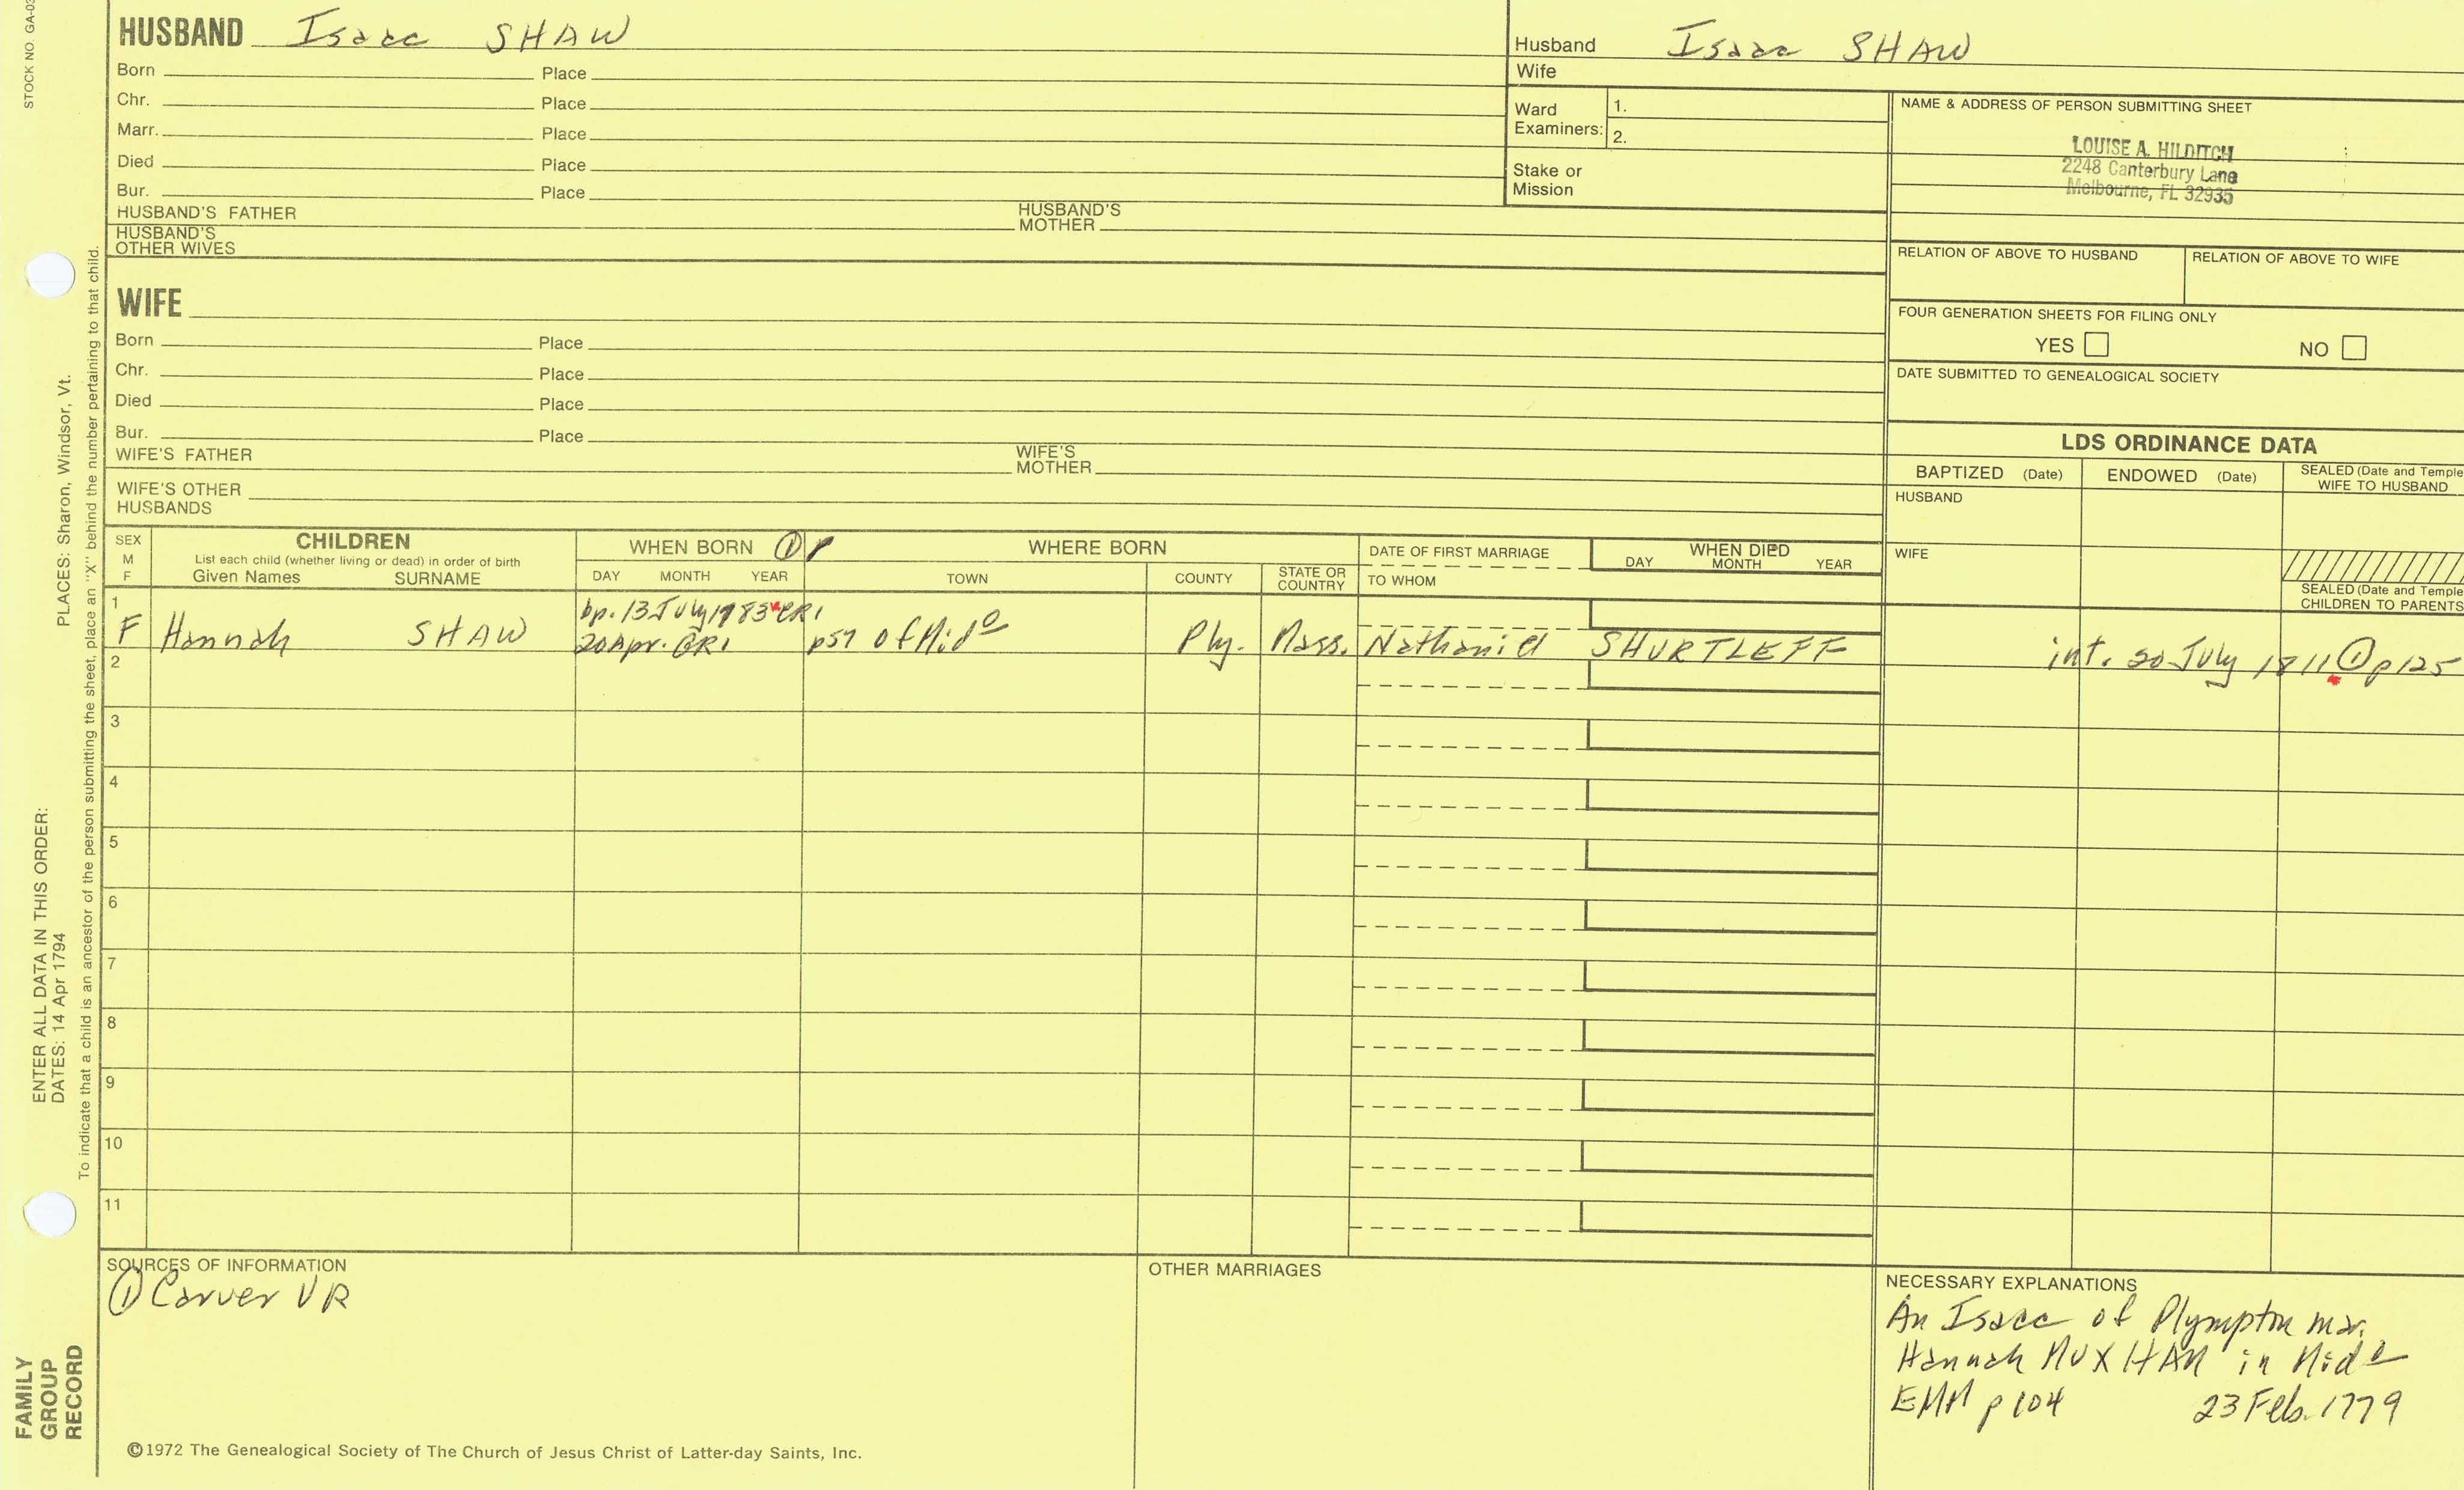 STOCK NO. GA-03
HUSBAND Isaac SHAW
Born Place
Chr. Place
Marr. Place
Died Place
Bur. Place
HUSBAND'S FATHER HUSBAND'S MOTHER
HUSBAND'S OTHER WIVES
Husband Isaac SHAW
Wife
Ward Examiners: 1.
2.
Stake or Mission
NAME & ADDRESS OF PERSON SUBMITTING SHEET
LOUISE A. HILDITCH
2248 Canterbury Lane
Melbourne, FL 32935
RELATION OF ABOVE TO HUSBAND RELATION OF ABOVE TO WIFE
FOUR GENERATION SHEETS FOR FILING ONLY
YES NO
DATE SUBMITTED TO GENEALOGICAL SOCIETY
WIFE
Born Place
Chr. Place
Died Place
Bur. Place
WIFE'S FATHER WIFE'S MOTHER
WIFE'S OTHER HUSBANDS
LDS ORDINANCE DATA
BAPTIZED (Date) ENDOWED (Date) SEALED (Date and Temple
WIFE TO HUSBAND
HUSBAND
WIFE
SEALED (Date and Temple
CHILDREN TO PARENTS
SEX
M
F
CHILDREN
List each child (whether living or dead) in order of birth
Given Names SURNAME
WHEN BORN ①
DAY MONTH YEAR
WHERE BORN
TOWN COUNTY STATE OR COUNTRY
DATE OF FIRST MARRIAGE
TO WHOM
WHEN DIED
DAY MONTH YEAR
1
bp. 13 July 1783 CR1
F Hannah SHAW 20 Apr. GR1 p57 of Mido Ply. Mass. Nathaniel SHURTLEFF int. 20 July 1811 ① p125
2
3
4
5
6
7
8
9
10
11
SOURCES OF INFORMATION
① Carver VR
OTHER MARRIAGES
NECESSARY EXPLANATIONS
An Isaac of Plympton mar.
Hannah MUXHAM in Mido
EMM p 104 23 Feb. 1779
©1972 The Genealogical Society of The Church of Jesus Christ of Latter-day Saints, Inc.
FAMILY
GROUP
RECORD
ENTER ALL DATA IN THIS ORDER:
DATES: 14 Apr 1794 PLACES: Sharon, Windsor, Vt.
To indicate that a child is an ancestor of the person submitting the sheet, place an "X" behind the number pertaining to that child.